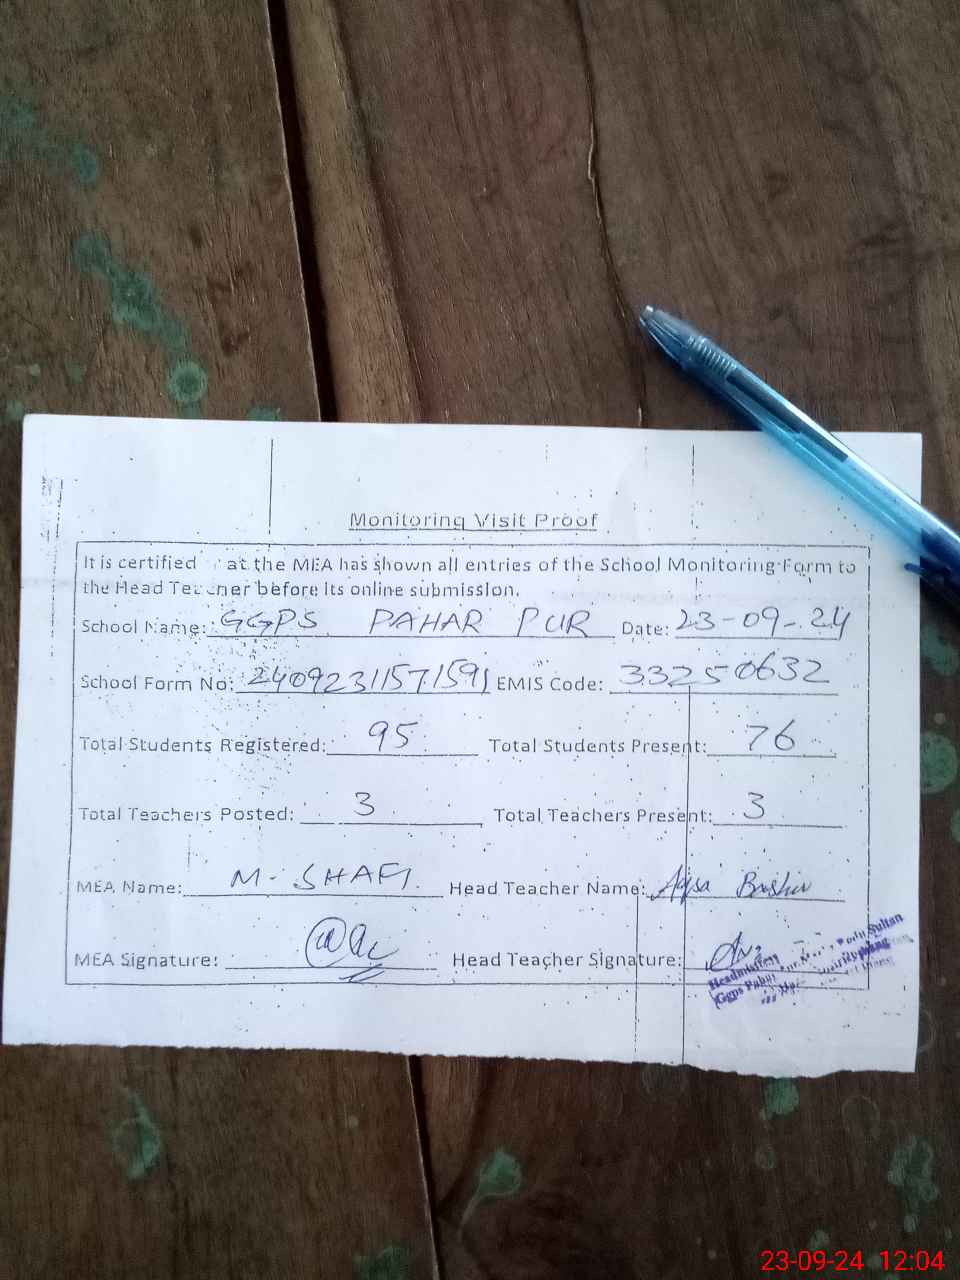 Monitoring Visit Proof
It is certified at the MEA has shown all entries of the School Monitoring Form to
the Head Teacher before its online submission.
School Name: GGPS PAHAR PUR Date: 23-09-24
School Form No: 24092311571591 EMIS Code: 33250632
Total Students Registered: 95 Total Students Present: 76
Total Teachers Posted: 3 Total Teachers Present: 3
MEA Name: M. SHAFI Head Teacher Name: Aqsa Bashir
MEA Signature: Head Teacher Signature:
Headmistress
Ggps
Sultan
23-09-24 12:04